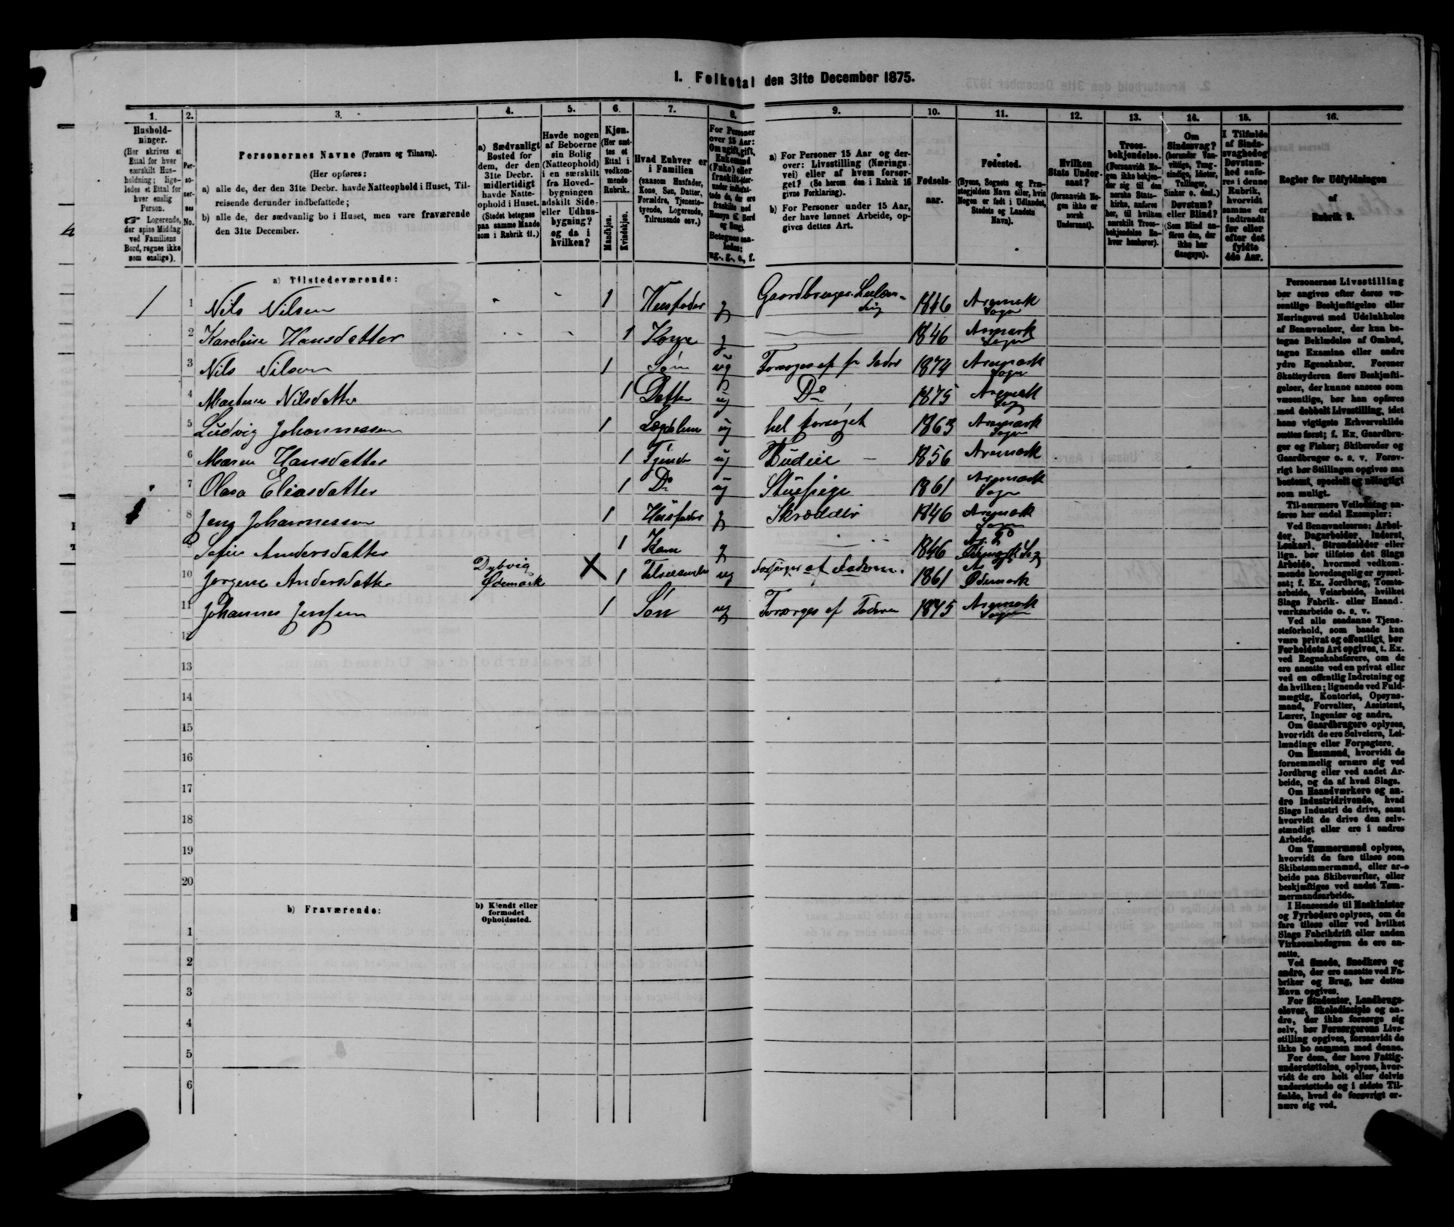 1. Folketal den 31te December 1875.
1. 2. 3. 4. 5. 6. 7. 8. 9. 10. 11. 12. 13. 14. 15. 16.
Husholdninger.
(Her skrives et Ettal for hver særskilt Husholdning; ligeledes et Ettal for hver enslig Person.
Logerende, der spise Middag ved Familiens Bord, regnes ikke som enslige).
Personernes No.
Personernes Navne (Fornavn og Tilnavn).
(Her opføres:
a) alle de, der den 31te Decbr. havde Natteophold i Huset, Tilreisende derunder indbefattede;
b) alle de, der sædvanlig bo i Huset, men vare fraværende den 31te December.
a) Sædvanligt Bosted for dem, der den 31te Decbr. midlertidigt havde Natteophold i Huset.
(Stedet betegnes paa samme Maade som i Rubrik 11.)
Havde nogen af Beboerne sin Bolig (Natteophold) i en særskilt fra Hovedbygningen adskilt Side- eller Udhusbygning? og da i hvilken?
Kjøn.
(Her sættes et Ettal i vedkommende Rubrik.
Mandkjøn. Kvindekjøn.
Hvad Enhver er i Familien
(saasom Husfader, Kone, Søn, Datter, Forældre, Tjenestetyende, Logerende, Tilreisende osv.)
a) For Personer 15 Aar og derover: Livsstilling (Næringsvei) eller af hvem forsørget? (Se herom den i Rubrik 16 givne Forklaring).
b) For Personer under 15 Aar, der have lønnet Arbeide, opgives dettes Art.
Fødselsaar.
Fødested.
(Byens, Sognets og Præstegjeldets Navn eller, hvis Nogen er født i Udlandet, Stedets og Landets Navn).
Hvilken Stats Undersaat?
(forsaavidt Nogen ikke er norsk Undersaat).
Troesbekjendelse.
(Forsaavidt Nogen ikke bekjender sig til den norske Statskirke, anføres her, til hvilken særskilt Troesbekjendelse Enhver henhører).
Om Sindssvag?
(herunder Vanvittige, Tungsindige, Idioter, Tullinger, Sinker o. desl.)
Døvstum? eller Blind?
(Som Blind anføres den, der ikke har Gangsyn).
I Tilfælde af Sindssvaghed og Døvstumhed anføres i denne Rubrik, hvorvidt samme er indtraadt før eller efter det fyldte 4de Aar.
Regler for Udfyldningen
af
Rubrik 9.
a) Tilstedeværende:
1 1 Nils Nilsen 1 Husfader g Gaardbruger 1846 Aremark Sogn
2 Karoline Hansdatter 1 Kone g 1846 Aremark Sogn
3 Nils Nilsen 1 Søn ug Forsørges af sin Fader 1874 Aremark Sogn
4 Martine Nilsdatter 1 Datter ug Do 1875 Aremark Sogn
5 Ludvig Johannessen 1 Lægdslem ug hel forsørget 1863 Aremark Sogn
6 Maren Hansdatter 1 Tjener ug Budeie 1856 Aremark
7 Olava Eliasdatter 1 Do ug Stuepige 1861 Aremark Sogn
1 8 Jens Johannessen 1 Husfader g Skrædder 1846 Aremark Sogn
9 Sofie Andersdatter 1 Kone g 1846 Ødemark Sogn
10 Jørgine Andersdatter Dybvig Ødemark X 1 ug Forsørges af Faderen. 1861 Ødemark
11 Johannes Jensen 1 Søn ug Forsørges af Faderen 1875 Aremark Sogn
12
13
14
15
16
17
18
19
20
b) Fraværende:
b) Kjendt eller formodet Opholdssted.
1
2
3
4
5
6
Personernes Livsstilling bør angives efter deres væsentlige Beskjæftigelse eller Næringsvei med Udelukkelse af Benævnelser, der kun betegne Bekledelse af Ombud, tagne Examina eller andre ydre Egenskaber. Forener Skatteyderen flere Beskjæftigelser, der kunne ansees som væsentlige, bør han opføres med dobbelt Livsstilling, idet hans vigtigste Erhvervskilde sættes først; f. Ex. Gaardbruger og Fisker; Skibsreder og Gaardbruger o. s. v. Forøvrigt bør Stillingen opgives saa bestemt, specielt og nøiagtigt som muligt.
Til nærmere Veiledning anføres her endel Exempler:
Ved Benævnelserne: Arbeider, Dagarbeider, Inderst, Løskarl, Strandsidder eller lign. bør tilføies det Slags Arbeide, hvormed vedkommende hovedsagelig er sysselsat; f. Ex. Jordbrug, Tomtearbeide, Veiarbeide, hvilket Slags Fabrik- eller Haandværksarbeide o. s. v.
Ved alle saadanne Tjenesteforhold, som baade kan være privat og offentligt, bør Forholdets Art opgives, t. Ex. ved Regnskabsførere, om de ere ansatte ved en privat eller ved en offentlig Indretning og da hvilken; lignende ved Fuldmægtig, Kontorist, Opsynsmand, Forvalter, Assistent, Lærer, Ingeniør og andre.
Om Gaardbrugere oplyses, hvorvidt de ere Selveiere, Leilændinge eller Forpagtere.
Om Husmænd, hvorvidt de fornemmelig ernære sig ved Jordbrug eller ved andet Arbeide, og da af hvad Slags.
Om Haandværkere og andre Industridrivende, hvad Slags Industri de drive, samt hvorvidt de drive den selvstændigt eller ere i andres Arbeide.
Om Tømmermænd oplyses, hvorvidt de fare tilsøs som Skibstømmermænd, eller arbeide paa Skibsværfter, eller beskjæftiges ved andet Tømmermandsarbeide.
I Henseende til Maskinister og Fyrbødere oplyses, om de fare tilsøs eller ved hvilket Slags Fabrikdrift eller anden Virksomhedsgren de ere ansatte.
Ved Smede, Snedkere og andre, der ere ansatte ved Fabriker og Brug, bør dettes Navn opgives.
For Studenter, Landbrugselever, Skoledisciple og andre, der ikke forsørge sig selv, bør Forsørgerens Livsstilling opgives, forsaavidt de ikke bo sammen med denne.
For dem, der have Fattigunderstøttelse, oplyses, hvorvidt de ere helt eller delvis understøttede og i sidste Tilfælde, hvad de forøvrigt ernære sig ved.